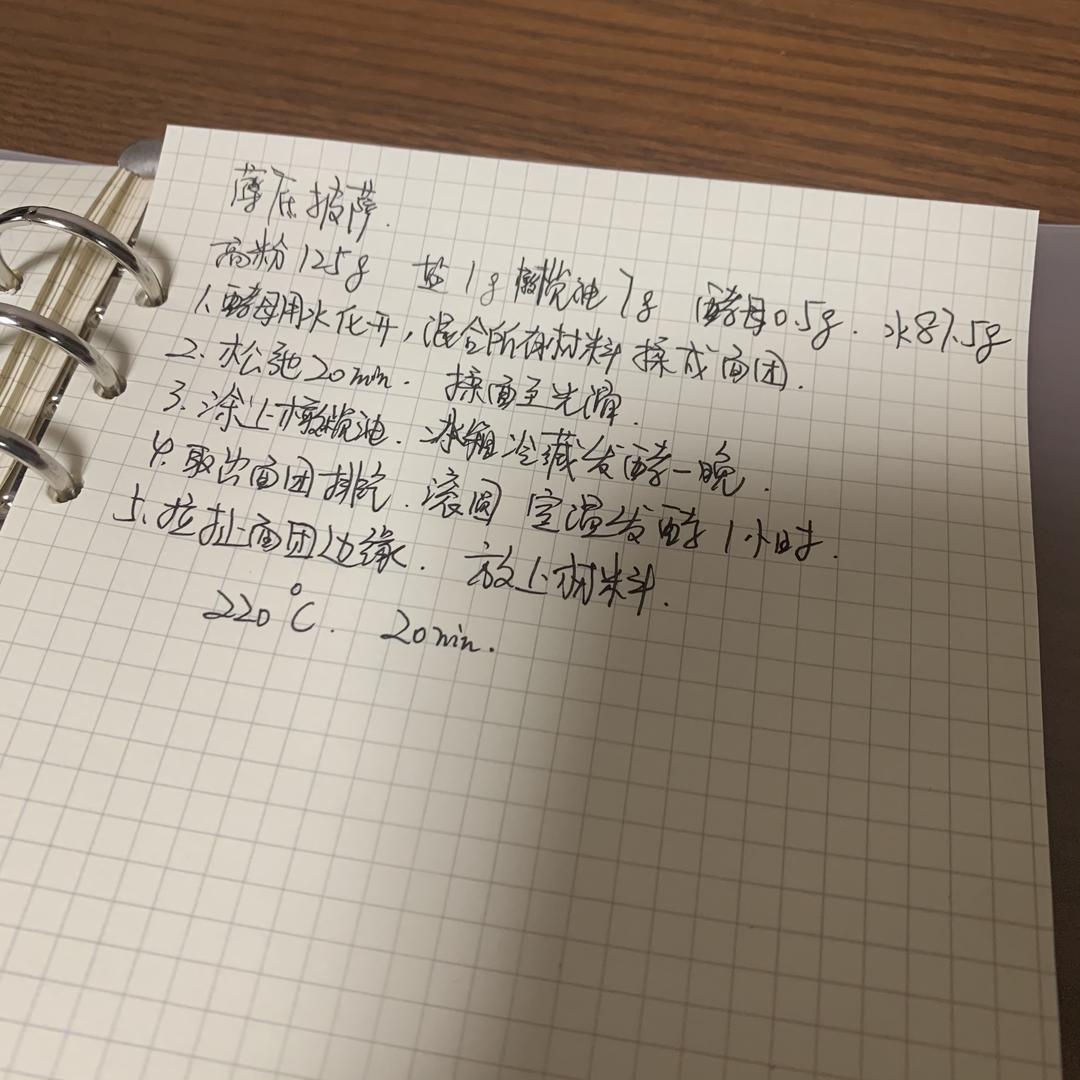 薄底披萨.
高粉125g 盐1g 橄榄油7g 酵母0.5g. 水87.5g
1.酵母用水化开,混合所有材料 揉成面团.
2.松弛20min. 揉面至光滑.
3.涂上橄榄油.冰箱冷藏发酵一晚.
4.取出面团排气.滚圆 室温发酵1小时.
5.拉扯面团边缘. 放上材料.
220℃. 20min.